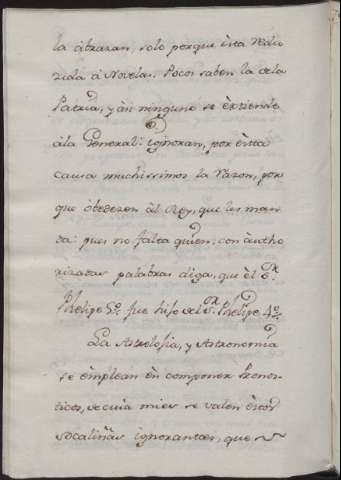 la abrazan, solo porque èsta redu
zida à Novelas. Pocos saben la dela
Patria, y àn ninguno se èxtiende
àla General: ignoran, por èsta
causa muchissimos la razon, por
que obedezen àl Rey, que les man
da: pues no falta quien, con àutho
rizadas palabras diga, que èl S.r
Phelipe 5.º fue hijo del S.r Phelipe 4.º
La Astrolosia, y Astronomia
se èmplean èn componer Prono
ticos, de cuia mies se valen èstos
socaliñas ignorantes, que